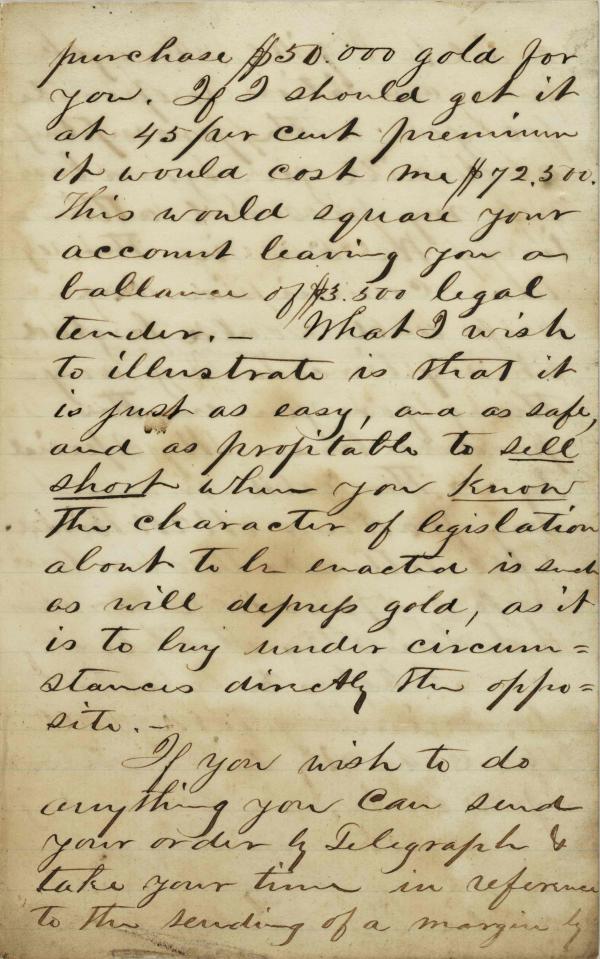 purchase $50.000 gold for
you. If I should get it
at 45 per cent premium
it would cost me $72.500.
This would square your
account leaving you a
ballance of $3.500 legal
tender. — What I wish
to illustrate is that it
is just as easy, and as safe,
and as profitable to sell
short when you know
the character of legislation
about to be enacted is such
as will depress gold, as it
is to buy under circum=
stances directly the oppo=
site. —
If you wish to do
anything you can send
your order by Telegraph &
take your time in reference
to the sending of a margin by